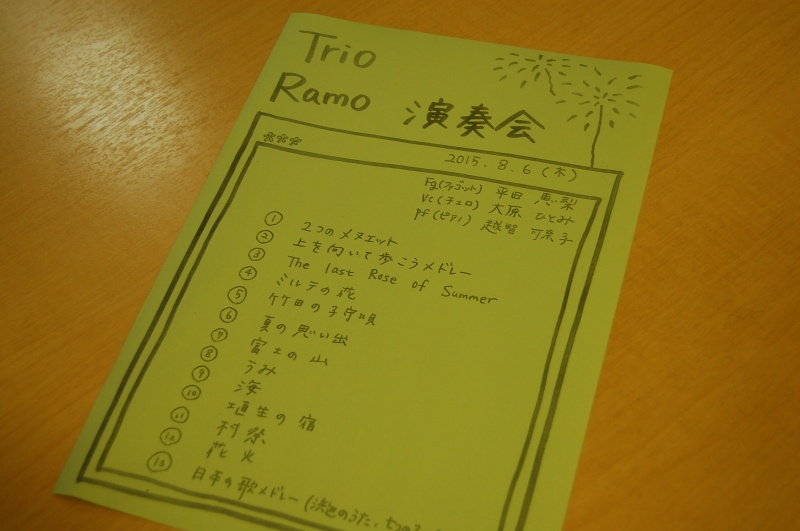 Trio
Ramo 演奏会
2015. 8. 6 (木)
Fg(ファゴット) 平田 恵梨
Vc(チェロ) 大原 ひとみ
Pf(ピアノ) 越智 可奈子
① 2つのメヌエット
② 上を向いて歩こうメドレー
③ The last Rose of Summer
④ ミルテの花
⑤ 竹田の子守唄
⑥ 夏の思い出
⑦ 富士の山
⑧ うみ
⑨ 海
⑩ 埴生の宿
⑪ 村祭
⑫ 花火
⑬ 日本の歌メドレー (浜辺のうた、七つの